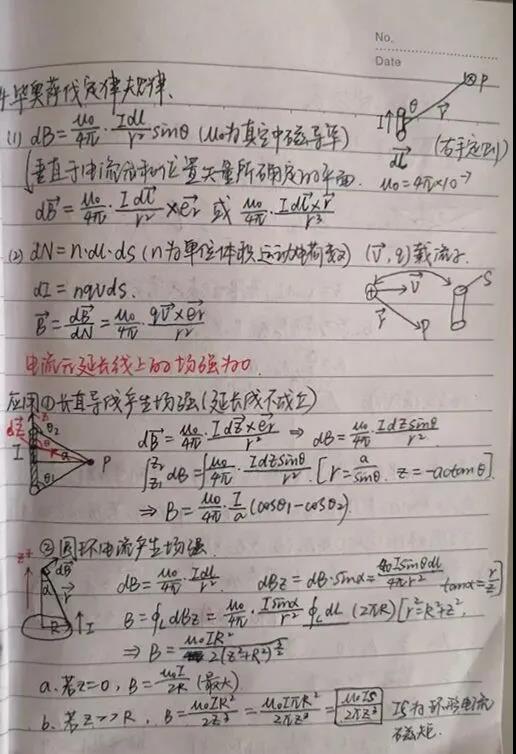 No.
Date
毕奥萨伐尔定律大定律.
(1) dB = μ₀/4π · Idl/r² sinθ (μ₀为真空中磁导率)
垂直于电流元和位置矢量所确定的平面.
(右手定则)
μ₀ = 4π×10⁻⁷
dB⃗ = μ₀/4π · Idl⃗/r² × e⃗r 或 μ₀/4π · Idl⃗×r⃗/r³
I θ r⃗ P dl⃗
(2) dN = n·dl·ds (n为单位体积运动电荷数) (v⃗, q) 载流子.
dI = nqvds.
B⃗ = dB⃗/dN = μ₀/4π · qv⃗×e⃗r/r²
+ v⃗ r⃗ P S
电流元延长线上的场强为0.
应用①长直导线产生场强(延长线不成立)
dB⃗ = μ₀/4π · Idz⃗×e⃗r/r² ⇒ dB = μ₀/4π · Idzsinθ/r²
∫z₁^z₂ dB = ∫ μ₀/4π · Idzsinθ/r² [r = a/sinθ. z = -acotanθ]
⇒ B = μ₀/4π · I/a (cosθ₁-cosθ₂)
z dz⃗ θ₂ θ I a P θ₁
②圆环电流产生场强.
dB = μ₀/4π · Idl/r² dBz = dB·sinα = μ₀Isinαdl/4πr² tanα = r/z
B = ∮L dBz = μ₀/4π · Isinα/r² ∮L dl (2πR) [r² = R²+z²,
⇒ B = μ₀IR²/2(z²+R²)^3/2
z dB⃗ α r⃗ R I
a. 若z=0, B = μ₀I/2R (最大)
b. 若z>>R, B = μ₀IR²/2z³ = μ₀IπR²/2πz³ = μ₀IS/2πz³ IS为环形电流
磁矩.